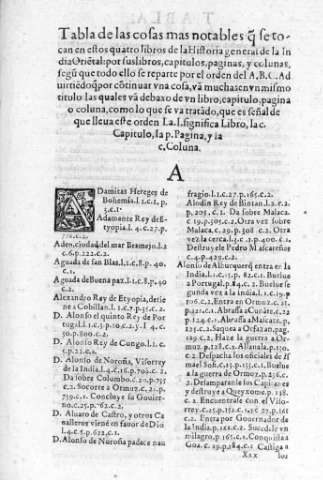 Tabla de las cosas mas notables q̃ se to-
can en estos quatro libros de la Historia general de la In
dia Oriẽtal: por sus libros, capitulos, paginas, y colunas,
segũ que todo ello se reparte por el orden del A.B.C. Ad
uirtiẽdo q̃ por cõtinuar vna cosa, vã muchas en vn mismo
titulo las quales vã debaxo de vn libro, capitulo, pagina
o coluna, como lo que se va tratãdo, que es señal de
que lleua este orden La .l. significa Libro, la c.
Capitulo, la p. Pagina, y la
c. Coluna.
A
ADamitas Hereges de
Bohemia. l.2.c.1. p.
3.c.1.
Adamante Rey de
tyopia. l. 4. c.27. p.
Aden, ciudad del mar Bermejo. l.2
c.6.p.122.c.2.
Aguada de san Blas. l.1.c.8.p. 40.
c.1.
Aguada de Buena paz. l.1.c.8.p. 40
c.2.
Alexandro Rey de Etyopia, desie
ne a Cobillan. l.1.c.7.p.35.c.2.
D. Alonso el quinto Rey de Por
tugal. l.1.c.5.p.20.c.2. y l. 4. c.
30.p.800.c.2.
D. Alonso Rey de Congo. l.1.c.
5.p.22.c.2.
D. Alonso de Noroña, Visorrey
de la India. l.4.c.16.p.705. c. 2.
Da sobre Columbo. c.22.p.735
c.2. Socorre a Ormuz. c.21.p.
739.c.1. Concluye su Gouier-
no. c.25.p.762.c.2.
D. Aluaro de Castro, y otros Ca
ualleros vienẽ en fauor de Diu
l.4.c.5.p.622.c.1.
D. Alonso de Noroña padece nau
fragio. l.1.c.27.p.165.c.2.
Alodin Rey de Bintan. l.2.c.2.
p.205. c. 1. Da sobre Malaca.
c 19.p.305.c.2. Otra vez sobre
Malaca. c. 29. p. 308 c.2. Otra
vez la cerca. l.3. c.2. p.400. c. 1.
Destruyele Pedro Mascareñas
c.4.p.429.c.2.
Alonso de Alburquerq̃ entra en la
India. l.1.c.15.p. 82.c.1. Buelue
a Portugal. p.84.c.2. Buelue se
gunda vez a la India. l.1.c.19.p
106.c.2. Entra en Ormuz. c. 21.
p.121.c.1. Abrasa a Curiate. c.22
p.124.c.1. Abrasa a Mascate. p.
125.c.2. Saquea a Orfazan. pag.
129.c.2. Haze la guerra a Or-
muz. p.128.c.2.
c.2. Despacha los oficiales de Is
mael Sofi. c.23.p.135.c.1. Buelue
a la guerra de Ormuz. p.236.c.
2. Desamparanle los Capitanes
y destruye a Queyxome. p.138.
c.2. Encuentrase con el Viso-
rrey. c.25.p.152.c.1. y c 27.p.161
c.2. Entra por Gouernador de
la India. p.162.c.2. Sucede le vn
milagro. p.165.c.1. Conquista a
Goa. c. 29.p.184.c.1 Castiga a
Xxx los